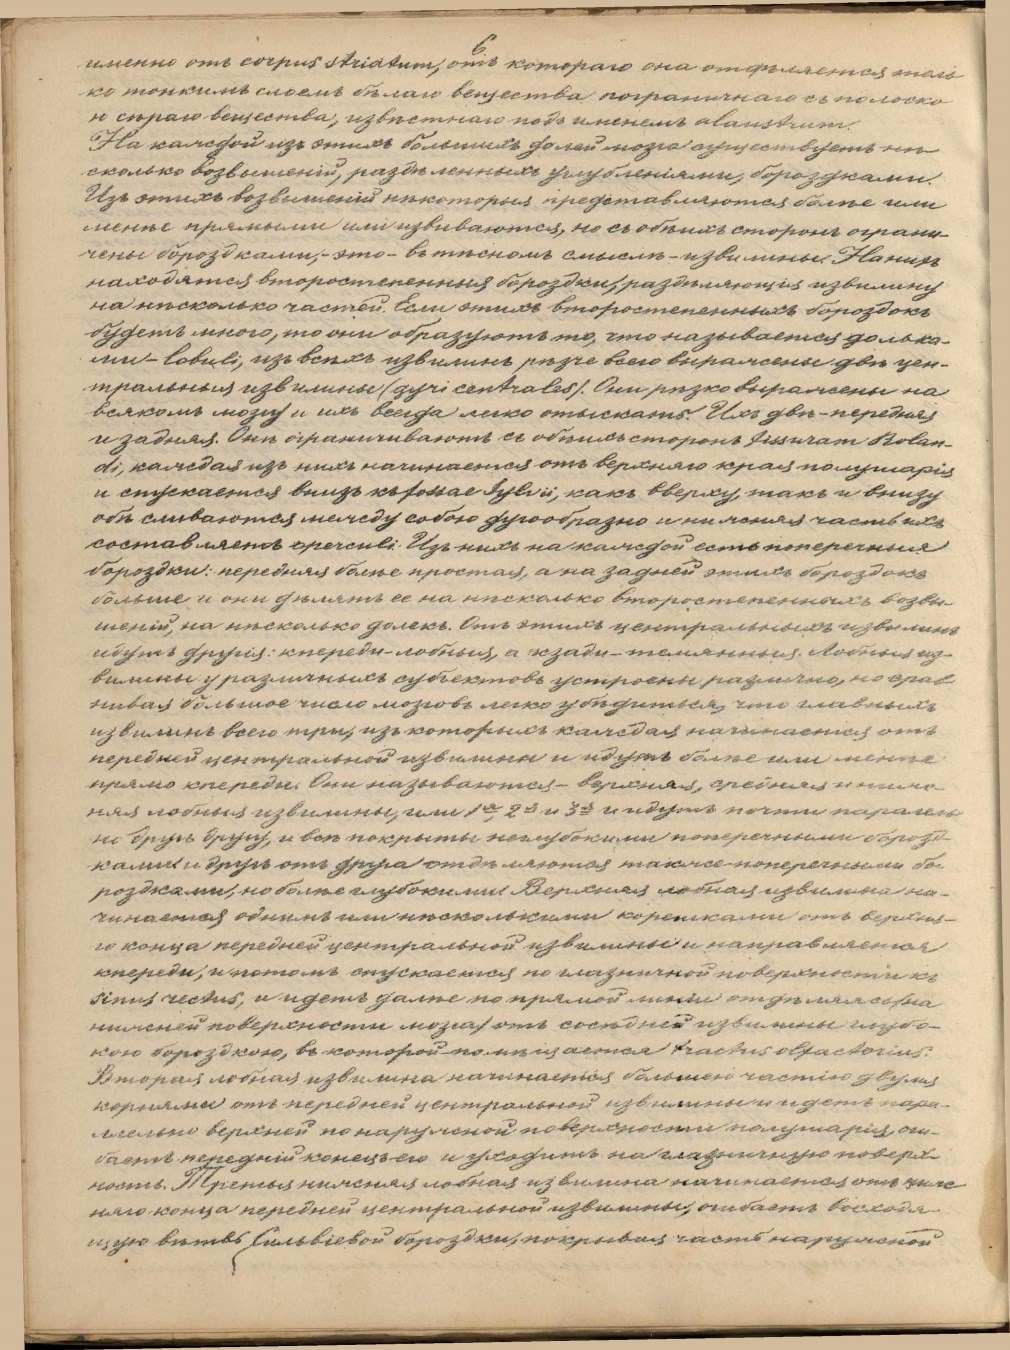 6
именно отъ corpus striatum, отъ котораго она отдѣляется толь
ко тонкимъ слоемъ бѣлаго вещества пограничнаго съ полоско
ю сѣраго вещества, извѣстнаго подъ именемъ claustrum.
На каждой изъ этихъ большихъ долей мозга существуетъ нѣ
сколько возвышеній, раздѣленныхъ углубленіями, бороздками.
Изъ этихъ возвышеній нѣкоторыя представляются болѣе или
менѣе прямыми или извиваются, но съ обѣихъ сторонъ ограни-
чены бороздками,-это-въ тѣсномъ смыслѣ-извилины. На нихъ
находятся второстепенныя бороздки, раздѣляющія извилину
на нѣсколько частей. Если этихъ второстепенныхъ бороздокъ
будетъ много, то они образуютъ то, что называется долька-
ми-lobuli, изъ всѣхъ извилинъ рѣзче всего выражены двѣ цен-
тральныя извилины (gyri centrales). Они рѣзко выражены на
всякомъ мозгу и ихъ всегда легко отыскать. Ихъ двѣ-передняя
и задняя. Онѣ ограничиваютъ съ обѣихъ сторонъ fissuram Rolan-
di, каждая изъ нихъ начинается отъ верхняго края полушарія
и спускается внизъ къ fossae Sylvii, какъ вверху, такъ и внизу
обѣ сливаются между собою дугообразно и нижняя часть ихъ
составляетъ operculi. Изъ нихъ на каждой есть поперечныя
бороздки: передняя болѣе простая, а на задней этихъ бороздокъ
больше и они дѣлятъ ее на нѣсколько второстепенныхъ возвы-
шеній, на нѣсколько долекъ. Отъ этихъ центральныхъ извилинъ
идутъ другія: кпереди-лобныя, а кзади-темянныя. Лобныя из-
вилины у различныхъ субъектовъ устроены различно, но срав
нивая большое число мозговъ легко убѣдиться, что главныхъ
извилинъ всего три, изъ которыхъ каждая начинается отъ
передней центральной извилины и идутъ болѣе или менѣе
прямо кпереди. Они называются-верхняя, средняя и ниж
няя лобныя извилины, или 1ая, 2я и 3я и идутъ почти паралель
но другъ другу, и всѣ покрыты неглубокими поперечными борозд-
ками и другъ отъ друга отдѣляются также поперечными бо-
роздками, но болѣе глубокими. Верхняя лобная извилина на-
чинается однимъ или нѣсколькими корешками отъ верхня-
го конца передней центральной извилины и направляется
кпереди, и потомъ спускается по глазничной поверхности къ
sinus rectus, и идетъ далѣе по прямой линіи отдѣляясь (на
нижней поверхности мозга) отъ сосѣдней извилины глубо-
кою бороздкою, въ которой помѣщается tractus olfactorius.
Вторая лобная извилина начинается большею частію двумя
корнями отъ передней центральной извилины и идетъ пара-
ллельно верхней по наружной поверхности полушарія, оги-
баетъ передній конецъ его и уходитъ на глазничную поверх-
ность. Третья нижняя лобная извилина начинается отъ ниж
няго конца передней центральной извилины, огибаетъ восходя-
щую вѣтвь Сильвіевой бороздки, покрывая часть наружной